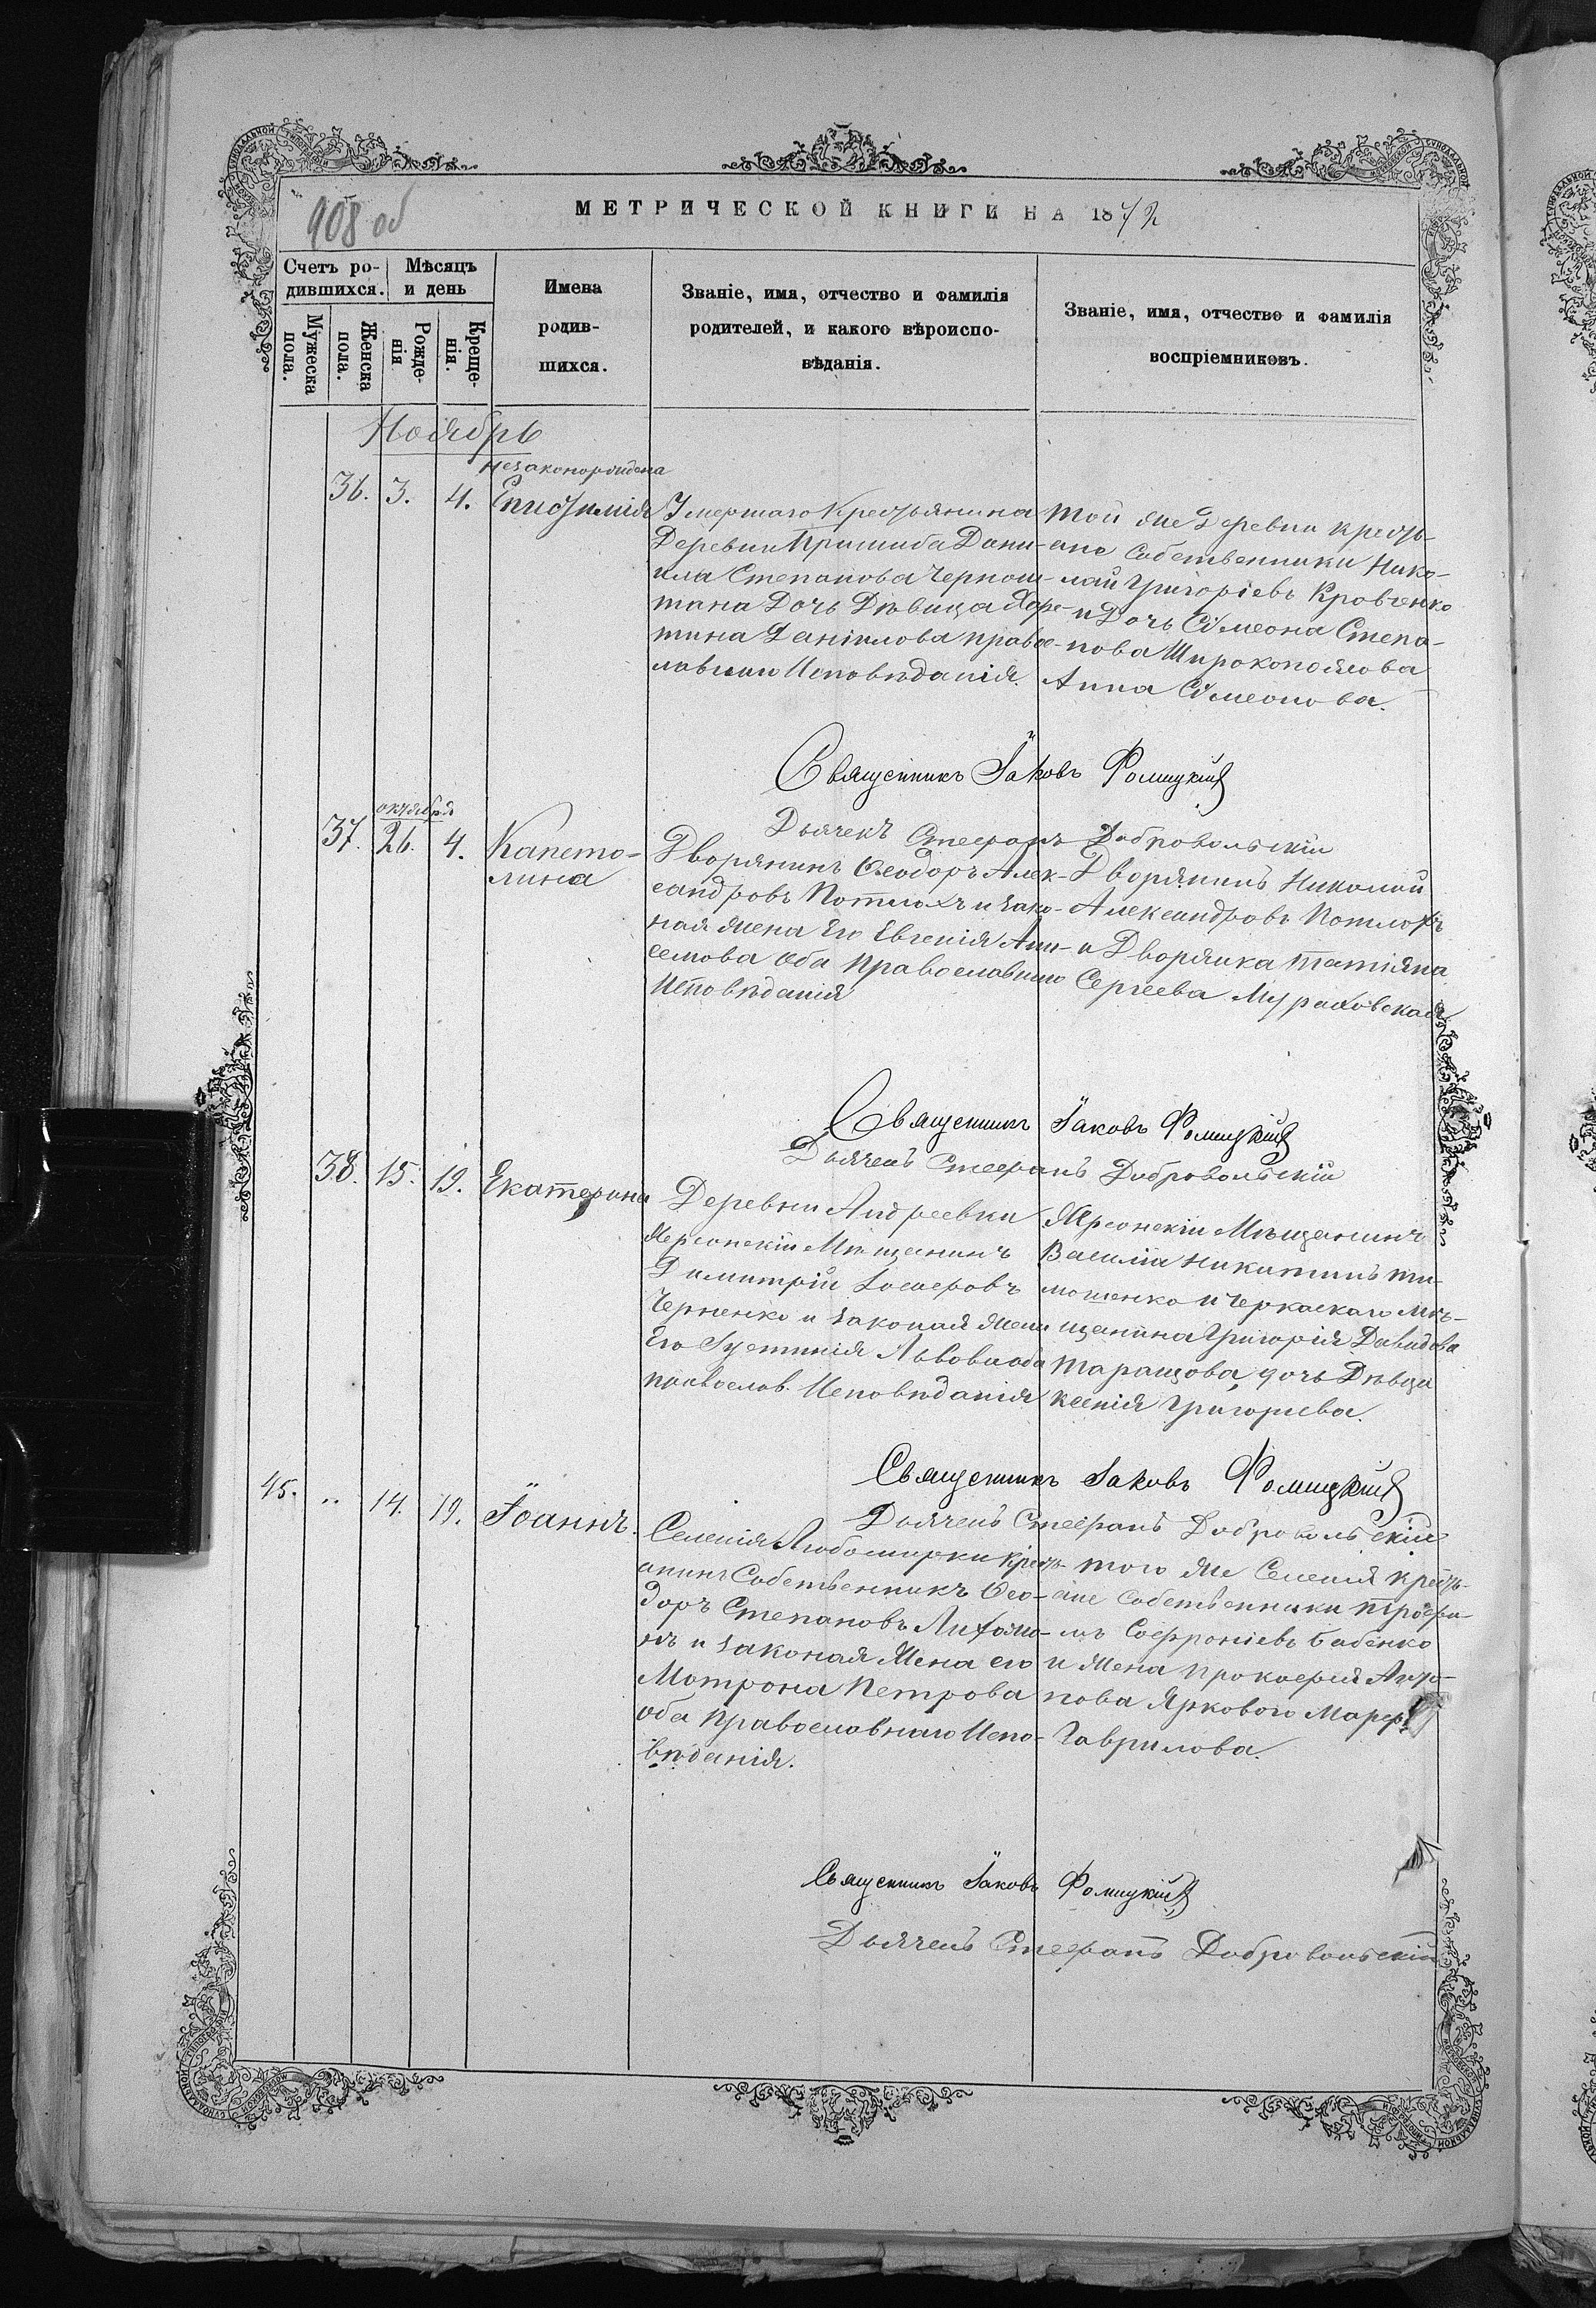 908 об
МЕТРИЧЕСКОЙ КНИГИ НА 1872
Счетъ ро-
дившихся.
Мѣсяцъ
и день
Имена
родив-
шихся.
Званіе, имя, отчество и фамилія
родителей, и какого вѣроиспо-
вѣданія.
Званіе, имя, отчество и фамилія
воспріемниковъ.
Мужеска
пола.
Женска
пола.
Рожде-
нія
Креще-
нія.
Ноябрь
незаконорождена
36. 3. 4. Епистимія
Умершаго Крестьянина
Деревни Пришиба Дани-
ила Степанова Чернош-
тана Дочь Дѣвица Хари-
тина Даніилова право-
славнаго Исповѣданія.
той же Деревни крестья-
ане Собственники Нико-
лай Григоріевъ Кровченко
и Дочь Сѵмеона Степа-
нова Широкопоясова
Анна Сѵмеонова.
Священникъ Іаковъ Фомицкій
Дьячекъ Стефанъ Добровольскій
октября
37. 26. 4. Капето-
лина
Дворянинъ Ѳеодоръ Алек-
сандровъ Потлохъ и зако-
ная жена Его Евгенія Ани-
семова Оба Православнаго
Исповѣданія
Дворянинъ Николай
Александровъ Потлохъ
и Дворянка Татіяна
Сергеева Мураховская
Священникъ Іаковъ Фомицкій
Дьячекъ Стефанъ Добровольскій
38. 15. 19. Екатерина
Деревни Андреевки
Херсонскій Мѣщанинъ
Димитрій
Черненко и законая жена
Его Іустинія Львова оба
православ. Исповѣданія
Херсонскій Мѣщанинъ
Василій Никитинъ Ти-
мошенко и Черкаскаго Мѣ-
щанина Григорія Давидова
Таращова, дочь Дѣвица
Ксенія Григорьева.
Священникъ Іаковъ Фомицкій
Дьячекъ Стефанъ Добровольскій
45. .. 14. 19. Іоаннъ.
Селенія Любомирки Кресть-
янинъ Собственникъ Ѳео-
доръ Степановъ
и законая Жена его
Мотрона Петрова
оба Православнаго Испо-
вѣданія.
того же Селенія Кресть-
яне Собственники Трофи-
мъ Софроніевъ Бабенко
и Жена Прокофія Анто-
нова Яркового Марфа
Гаврилова.
Священникъ Іаковъ Фомицкій
Дьячекъ Стефанъ Добровольскій